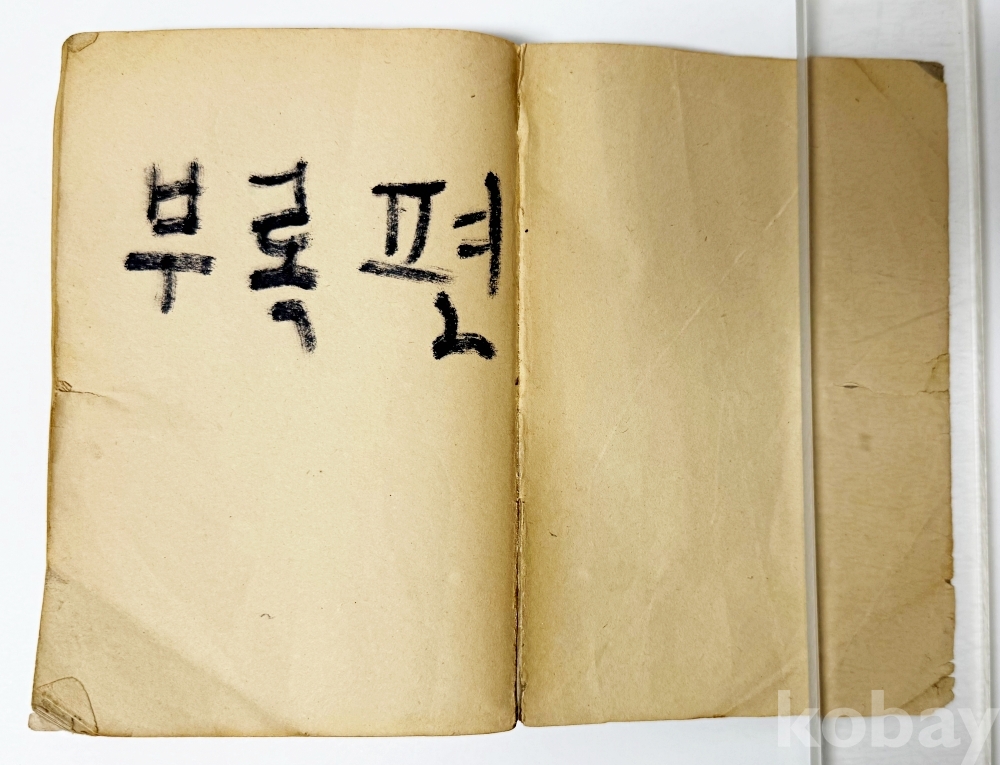 부록편
kobay